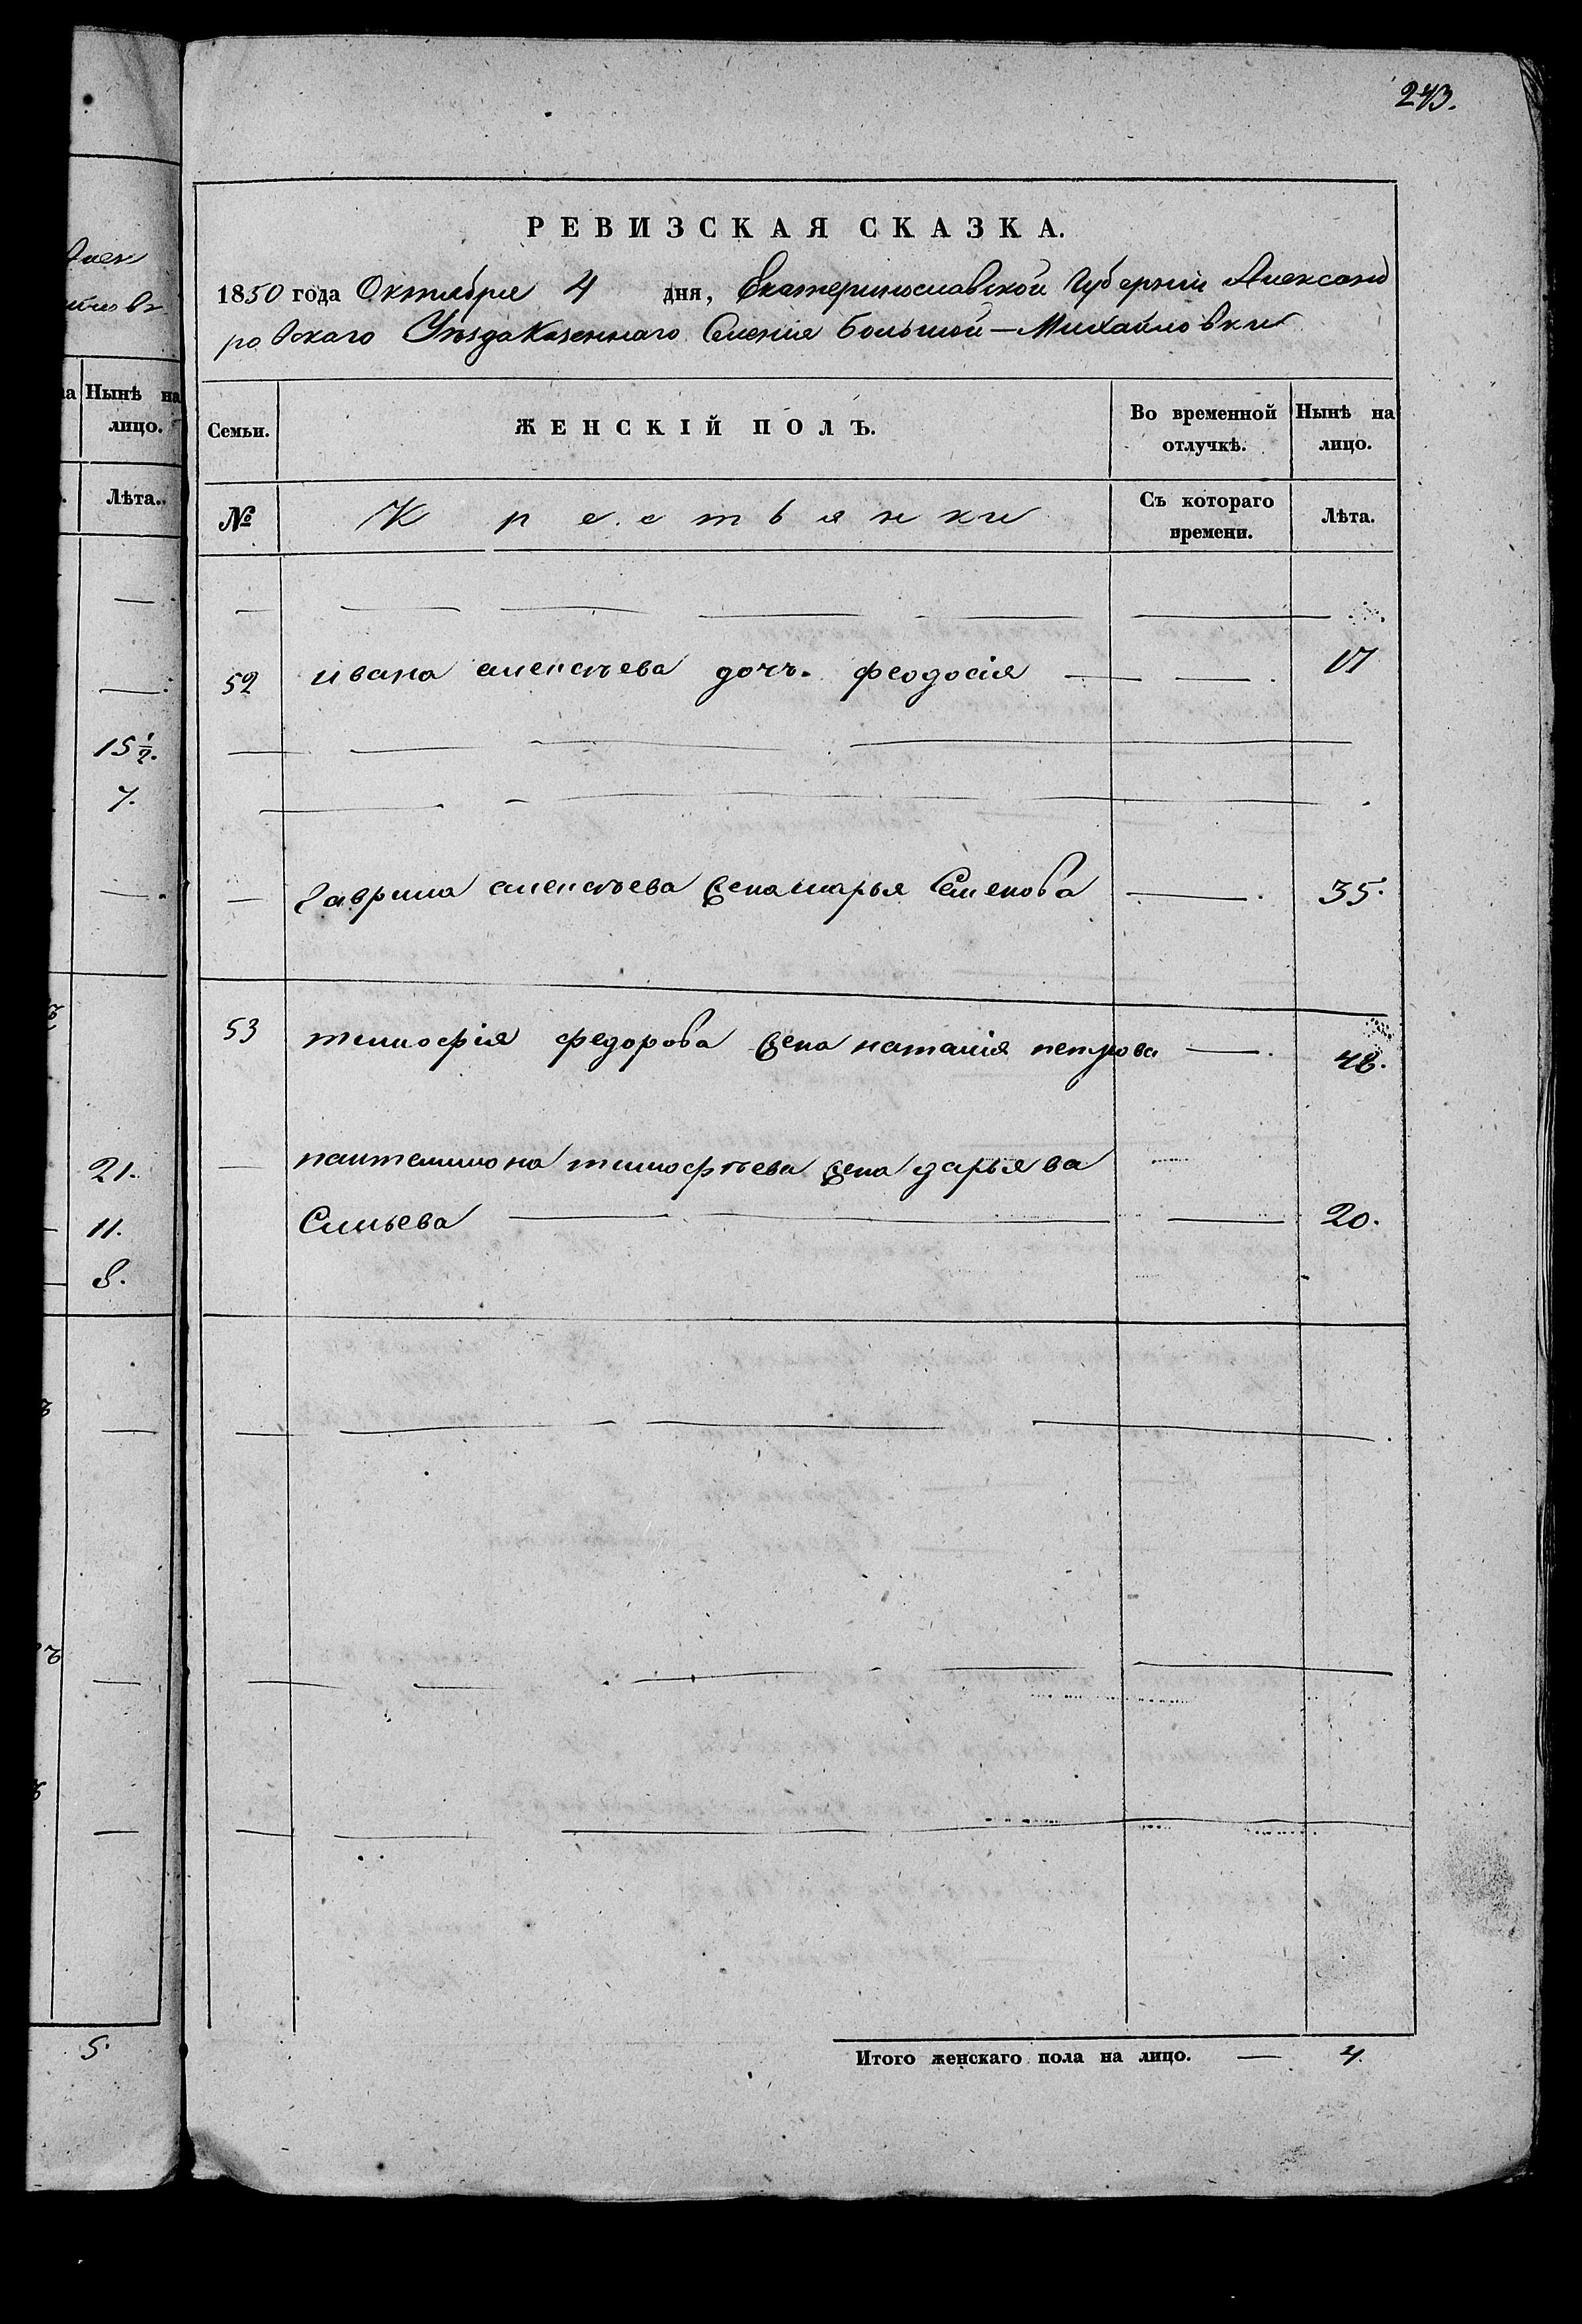 243.
РЕВИЗСКАЯ СКАЗКА.
1850 года Октября 4 дня, Екатеринославской Губернии Александ
ровскаго Уезда Казеннаго Селения Большой-Михайловки
Семьи. ЖЕНСКІЙ ПОЛЪ. Во временной отлучкѣ. Нынѣ на лицо.
№ Крестьянки Съ котораго времени. Лѣта.
52 ивана алексѣева дочь. феодосія — — . 17
— гаврила алексѣева жена марья Семенова — . 35.
53 тимофія федорова жена наталія петрова — . 48.
— пантелимона тимофѣева жена дарья ва
Сильева — — — 20.
Итого женскаго пола на лицо. — 4.
Нынѣ на
лицо.
Лѣта.
15½.
7.
21.
11.
8.
5.